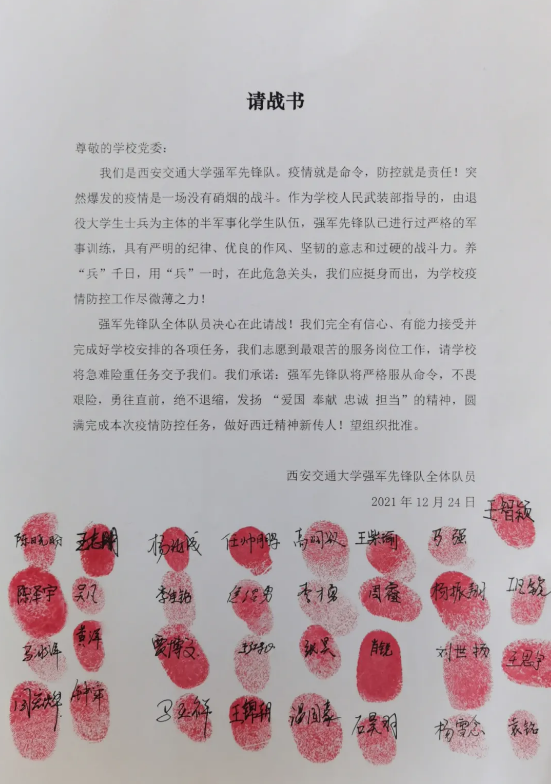 请战书
尊敬的学校党委：
我们是西安交通大学强军先锋队。疫情就是命令，防控就是责任！突
然爆发的疫情是一场没有硝烟的战斗。作为学校人民武装部指导的，由退
役大学生士兵为主体的半军事化学生队伍，强军先锋队已进行过严格的军
事训练，具有严明的纪律、优良的作风、坚韧的意志和过硬的战斗力。养
“兵”千日，用“兵”一时，在此危急关头，我们应挺身而出，为学校疫
情防控工作尽微薄之力！
强军先锋队全体队员决心在此请战！我们完全有信心、有能力接受并
完成好学校安排的各项任务，我们志愿到最艰苦的服务岗位工作，请学校
将急难险重任务交予我们。我们承诺：强军先锋队将严格服从命令，不畏
艰险，勇往直前，绝不退缩，发扬 “爱国 奉献 忠诚 担当”的精神，圆
满完成本次疫情防控任务，做好西迁精神新传人！望组织批准。
西安交通大学强军先锋队全体队员
2021 年 12 月 24 日
王智颖
马强
陈泽宇 杨振翔
黄洋 刘世扬 王思宇
钟年 杨雪念 袁铭